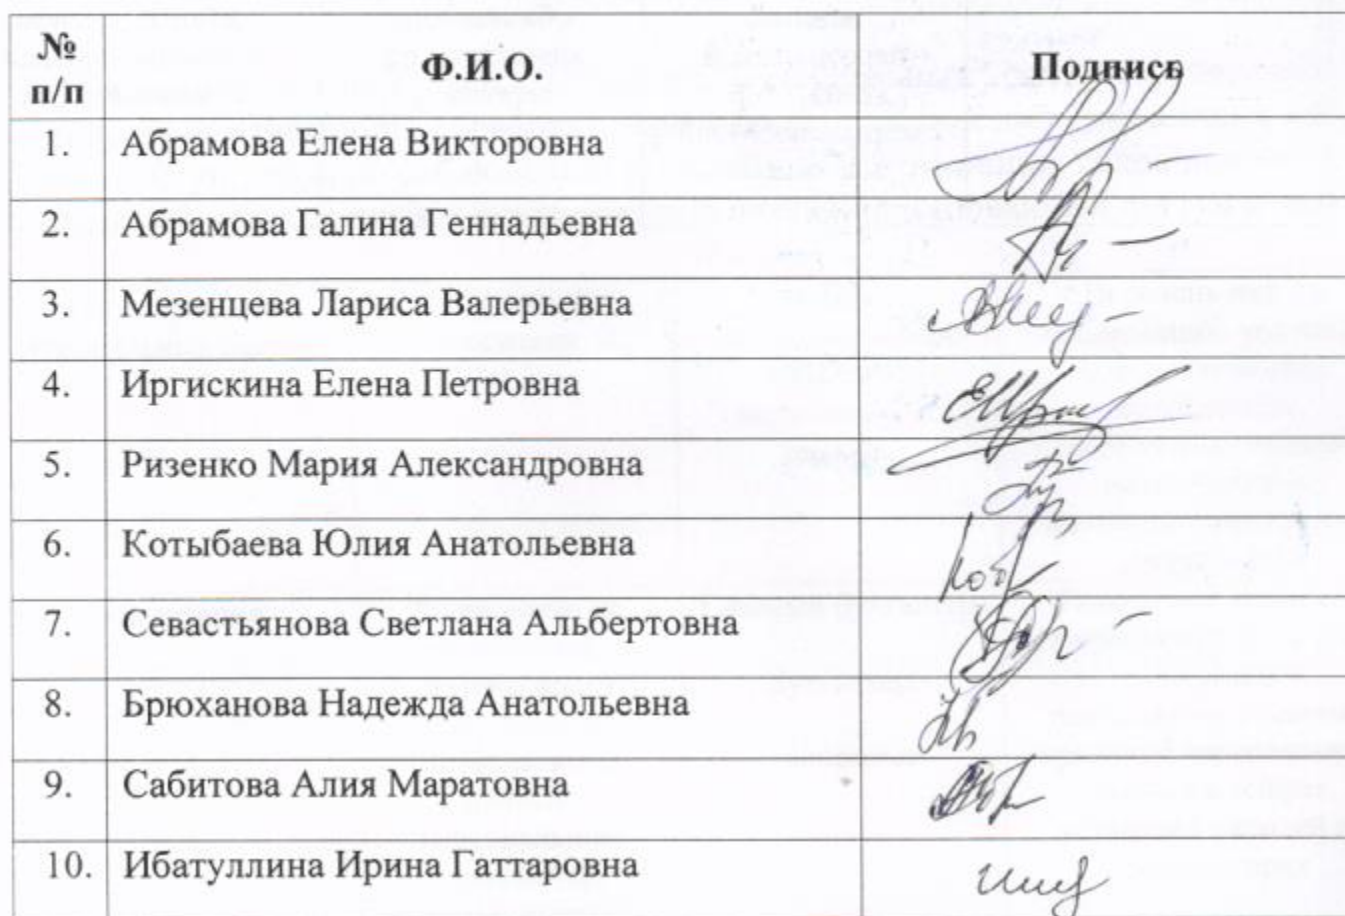 № п/п Ф.И.О. Подпись
1. Абрамова Елена Викторовна
2. Абрамова Галина Геннадьевна
3. Мезенцева Лариса Валерьевна
4. Иргискина Елена Петровна
5. Ризенко Мария Александровна
6. Котыбаева Юлия Анатольевна
7. Севастьянова Светлана Альбертовна
8. Брюханова Надежда Анатольевна
9. Сабитова Алия Маратовна
10. Ибатуллина Ирина Гаттаровна